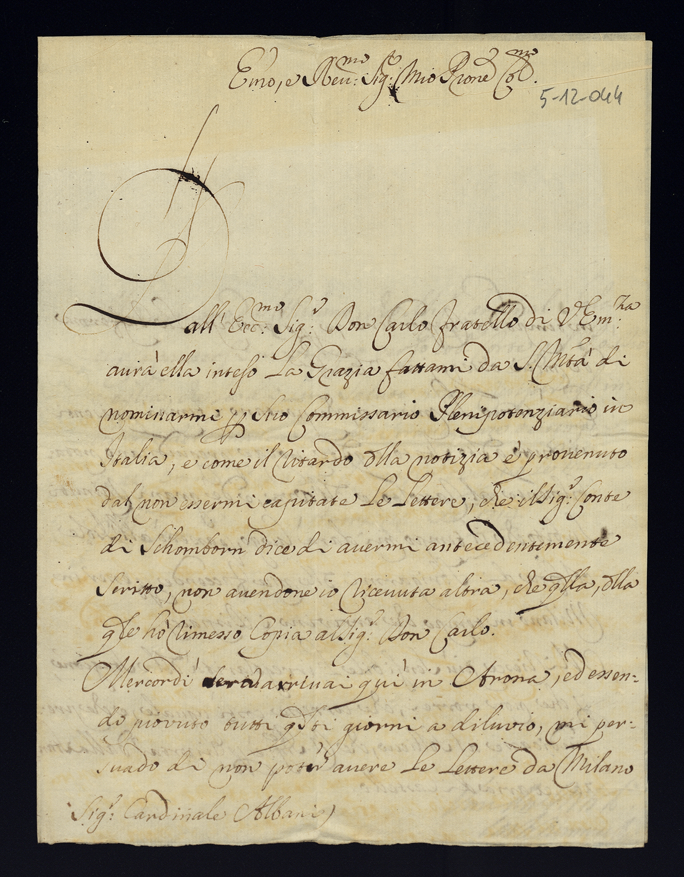 Emo, e Reu:mo Sig:r Mio Prone Col:mo
5-12-044
Dall' Ecc:mo Sig:r Don Carlo fratello di V. Em:za
aurà ella inteso La Grazia fattami da S. Mtà di
nominarme p Suo Commissario Plenipotenziario in
Italia, e come il ritardo dlla notizia è prouenuto
dal non essermi capitate Le Lettere, che il Sig:r Conte
di Schomborn dice di auermi antecedentemente
Scritto, non auendone io riceuuta altra, che qlla, dlla
qle hò rimesso Copia al Sig:r Don Carlo.
Mercordi sera arriuai quì in Arona, ed essen-
do piovuto tutti qsti giorni a diluuio, mi per-
suado di non poter auere Le Lettere da Milano
Sig:r Cardinale Albani